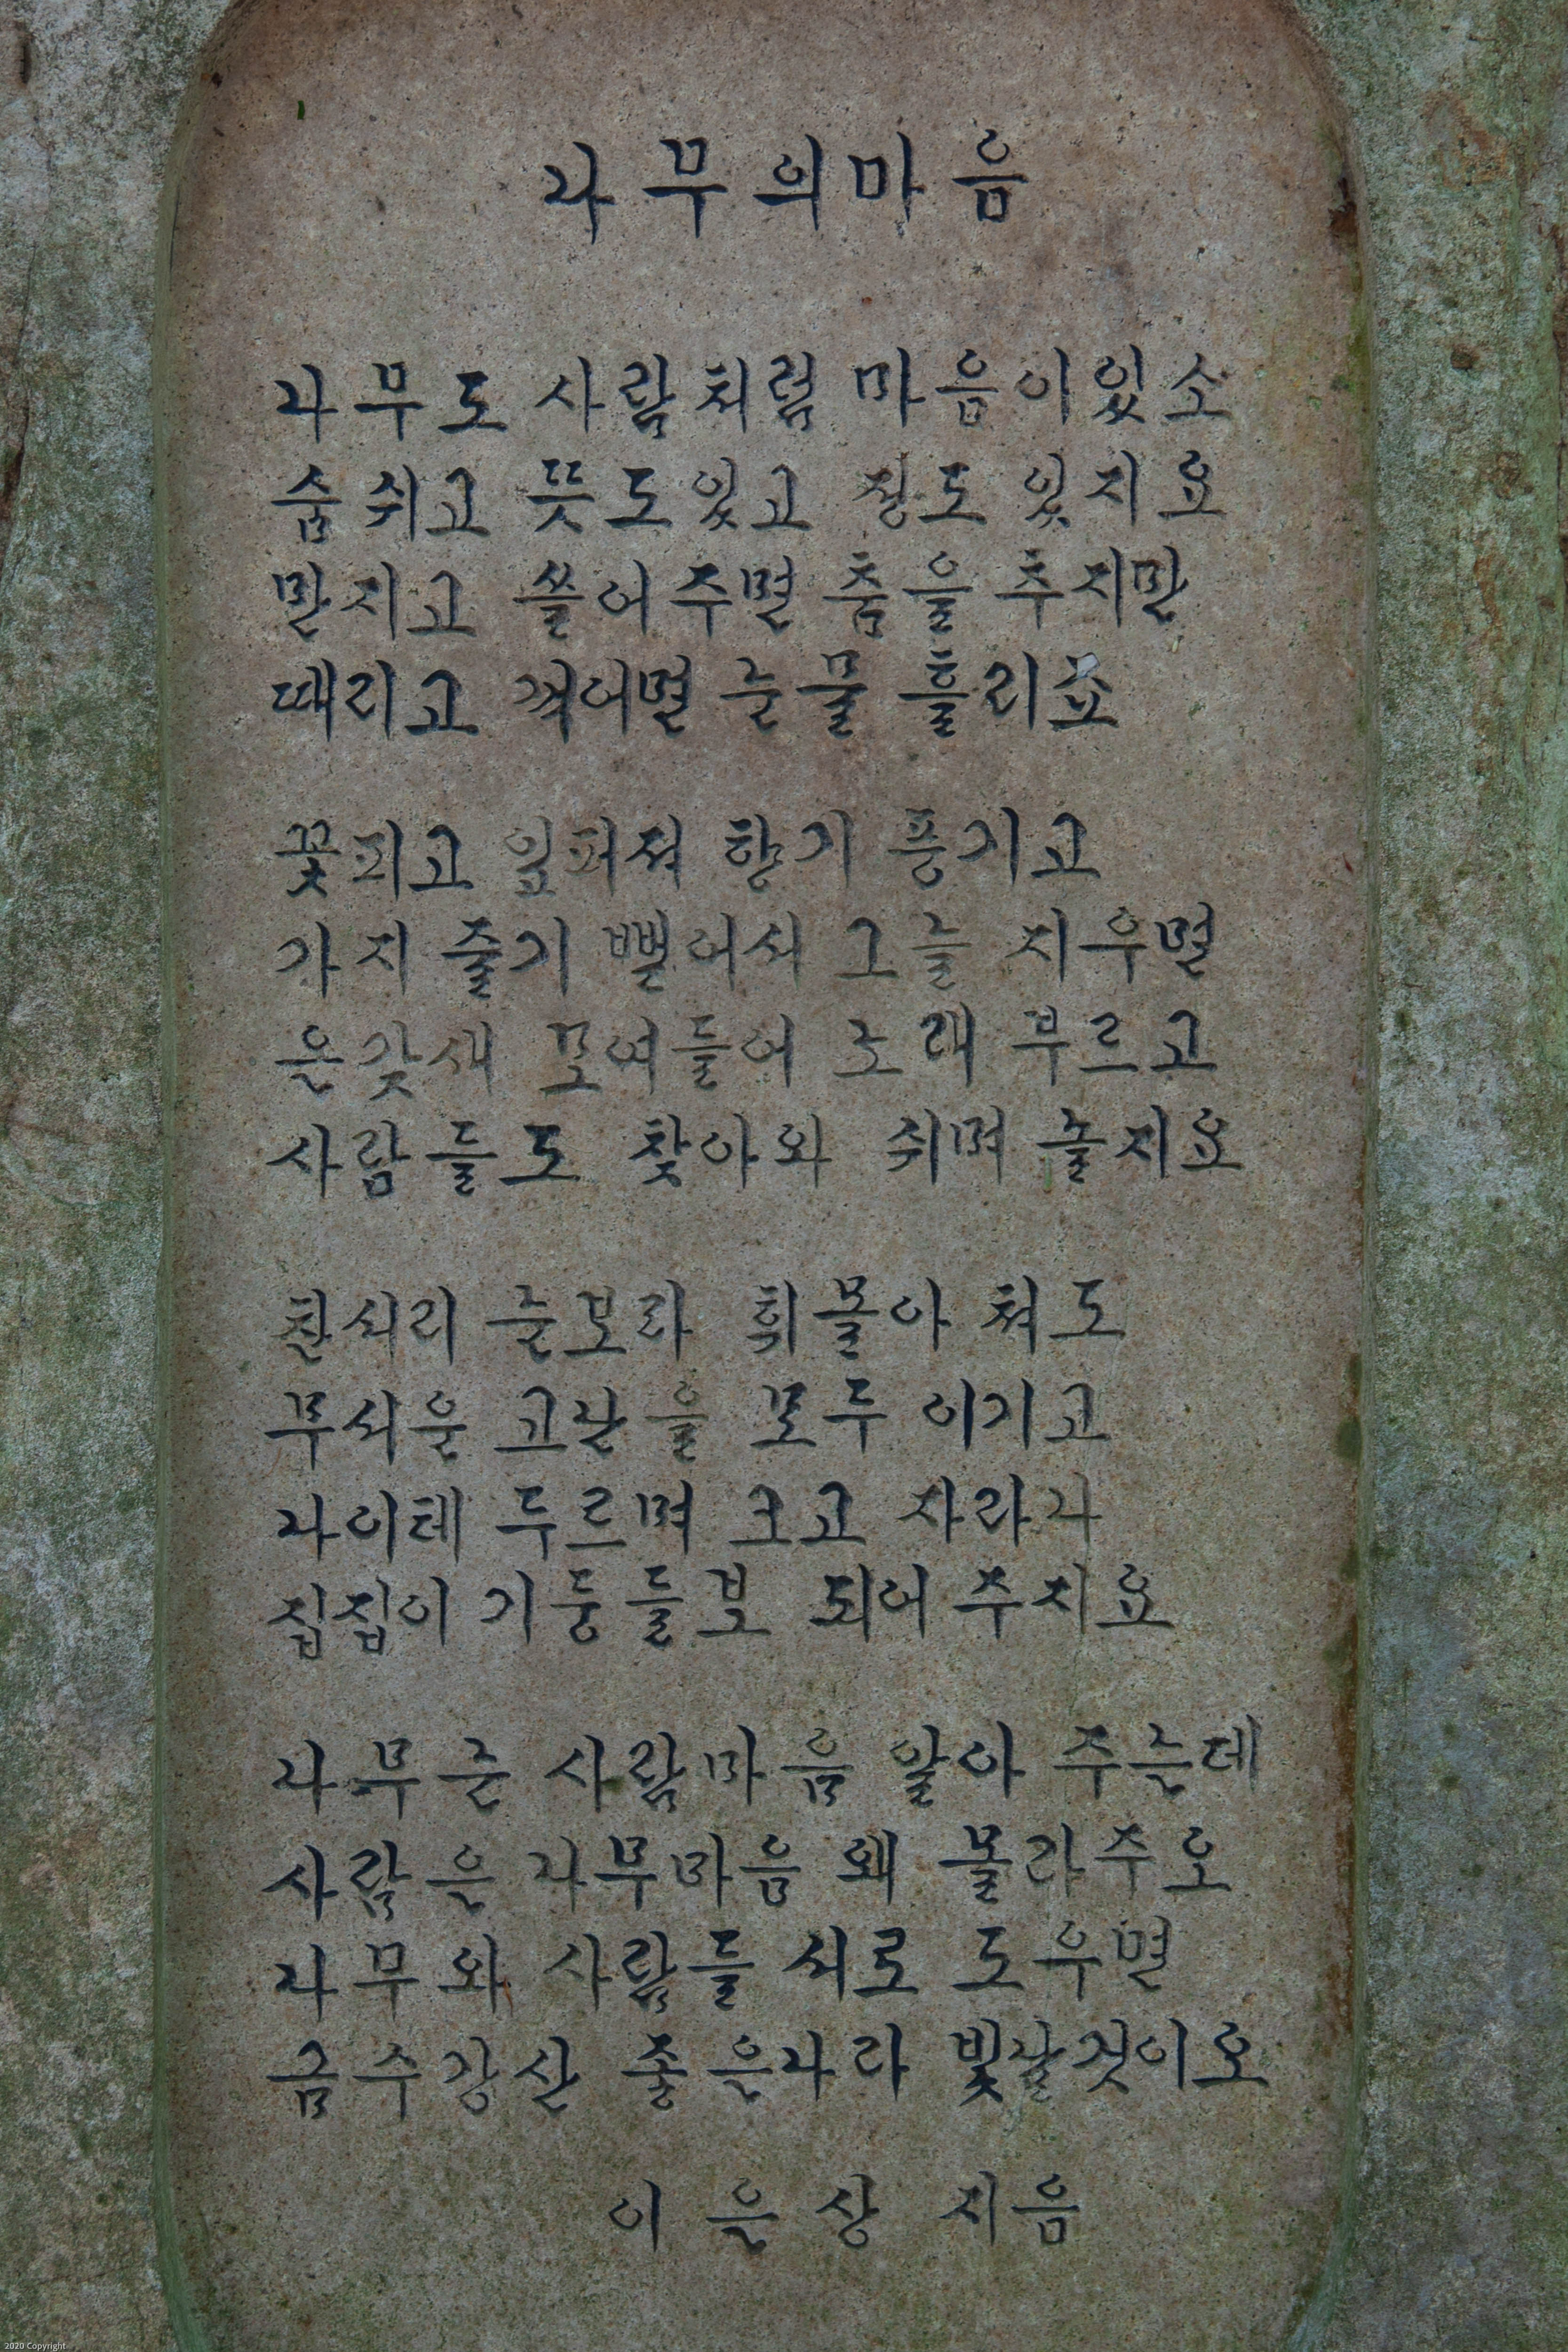 나무의마음
나무도 사람처럼 마음이있소
숨쉬고 뜻도있고 정도 있지요
만지고 쓸어주면 춤을 추지만
때리고 꺾어면 눈물 흘리죠
꽃피고 잎퍼져 향기 풍기고
가지 줄기 뻗어서 그늘 지우면
온갖새 모여들어 노래 부르고
사람들도 찾아와 쉬며 놀지요
찬서리 눈보라 휘몰아 쳐도
무서운 고난을 모두 이기고
나이테 두르며 크고 자라나
집집이 기둥들보 되어 주지요
나무는 사람마음 알아 주는데
사람은 나무마음 왜 몰라주오
나무와 사람들 서로 도우면
금수강산 좋은나라 빛날것이오
이은상 지음
2020 Copyright